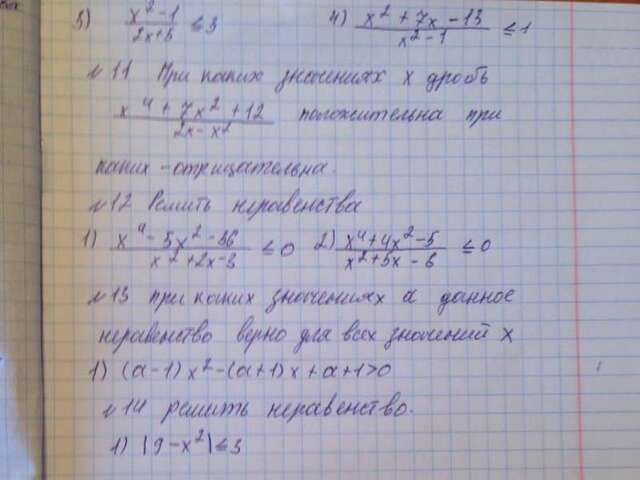 3) (x² - 1)/(2x+5) ≤ 3   4) (x² + 7x - 13)/(x² - 1) ≤ 1
№11 При каких значениях x дробь
(x⁴ + 7x² + 12)/(2x - x²) положительна при
каких - отрицательна.
№12 Решить неравенства
1) (x⁴ - 5x² - 36)/(x² + 2x - 3) ≤ 0   2) (x⁴ + 4x² - 5)/(x² + 5x - 6) ≤ 0
№13 при каких значениях a данное
неравенство верно для всех значений x
1) (a-1)x² - (a+1)x + a + 1 > 0
№14 решить неравенство.
1) |9 - x²| ≤ 3